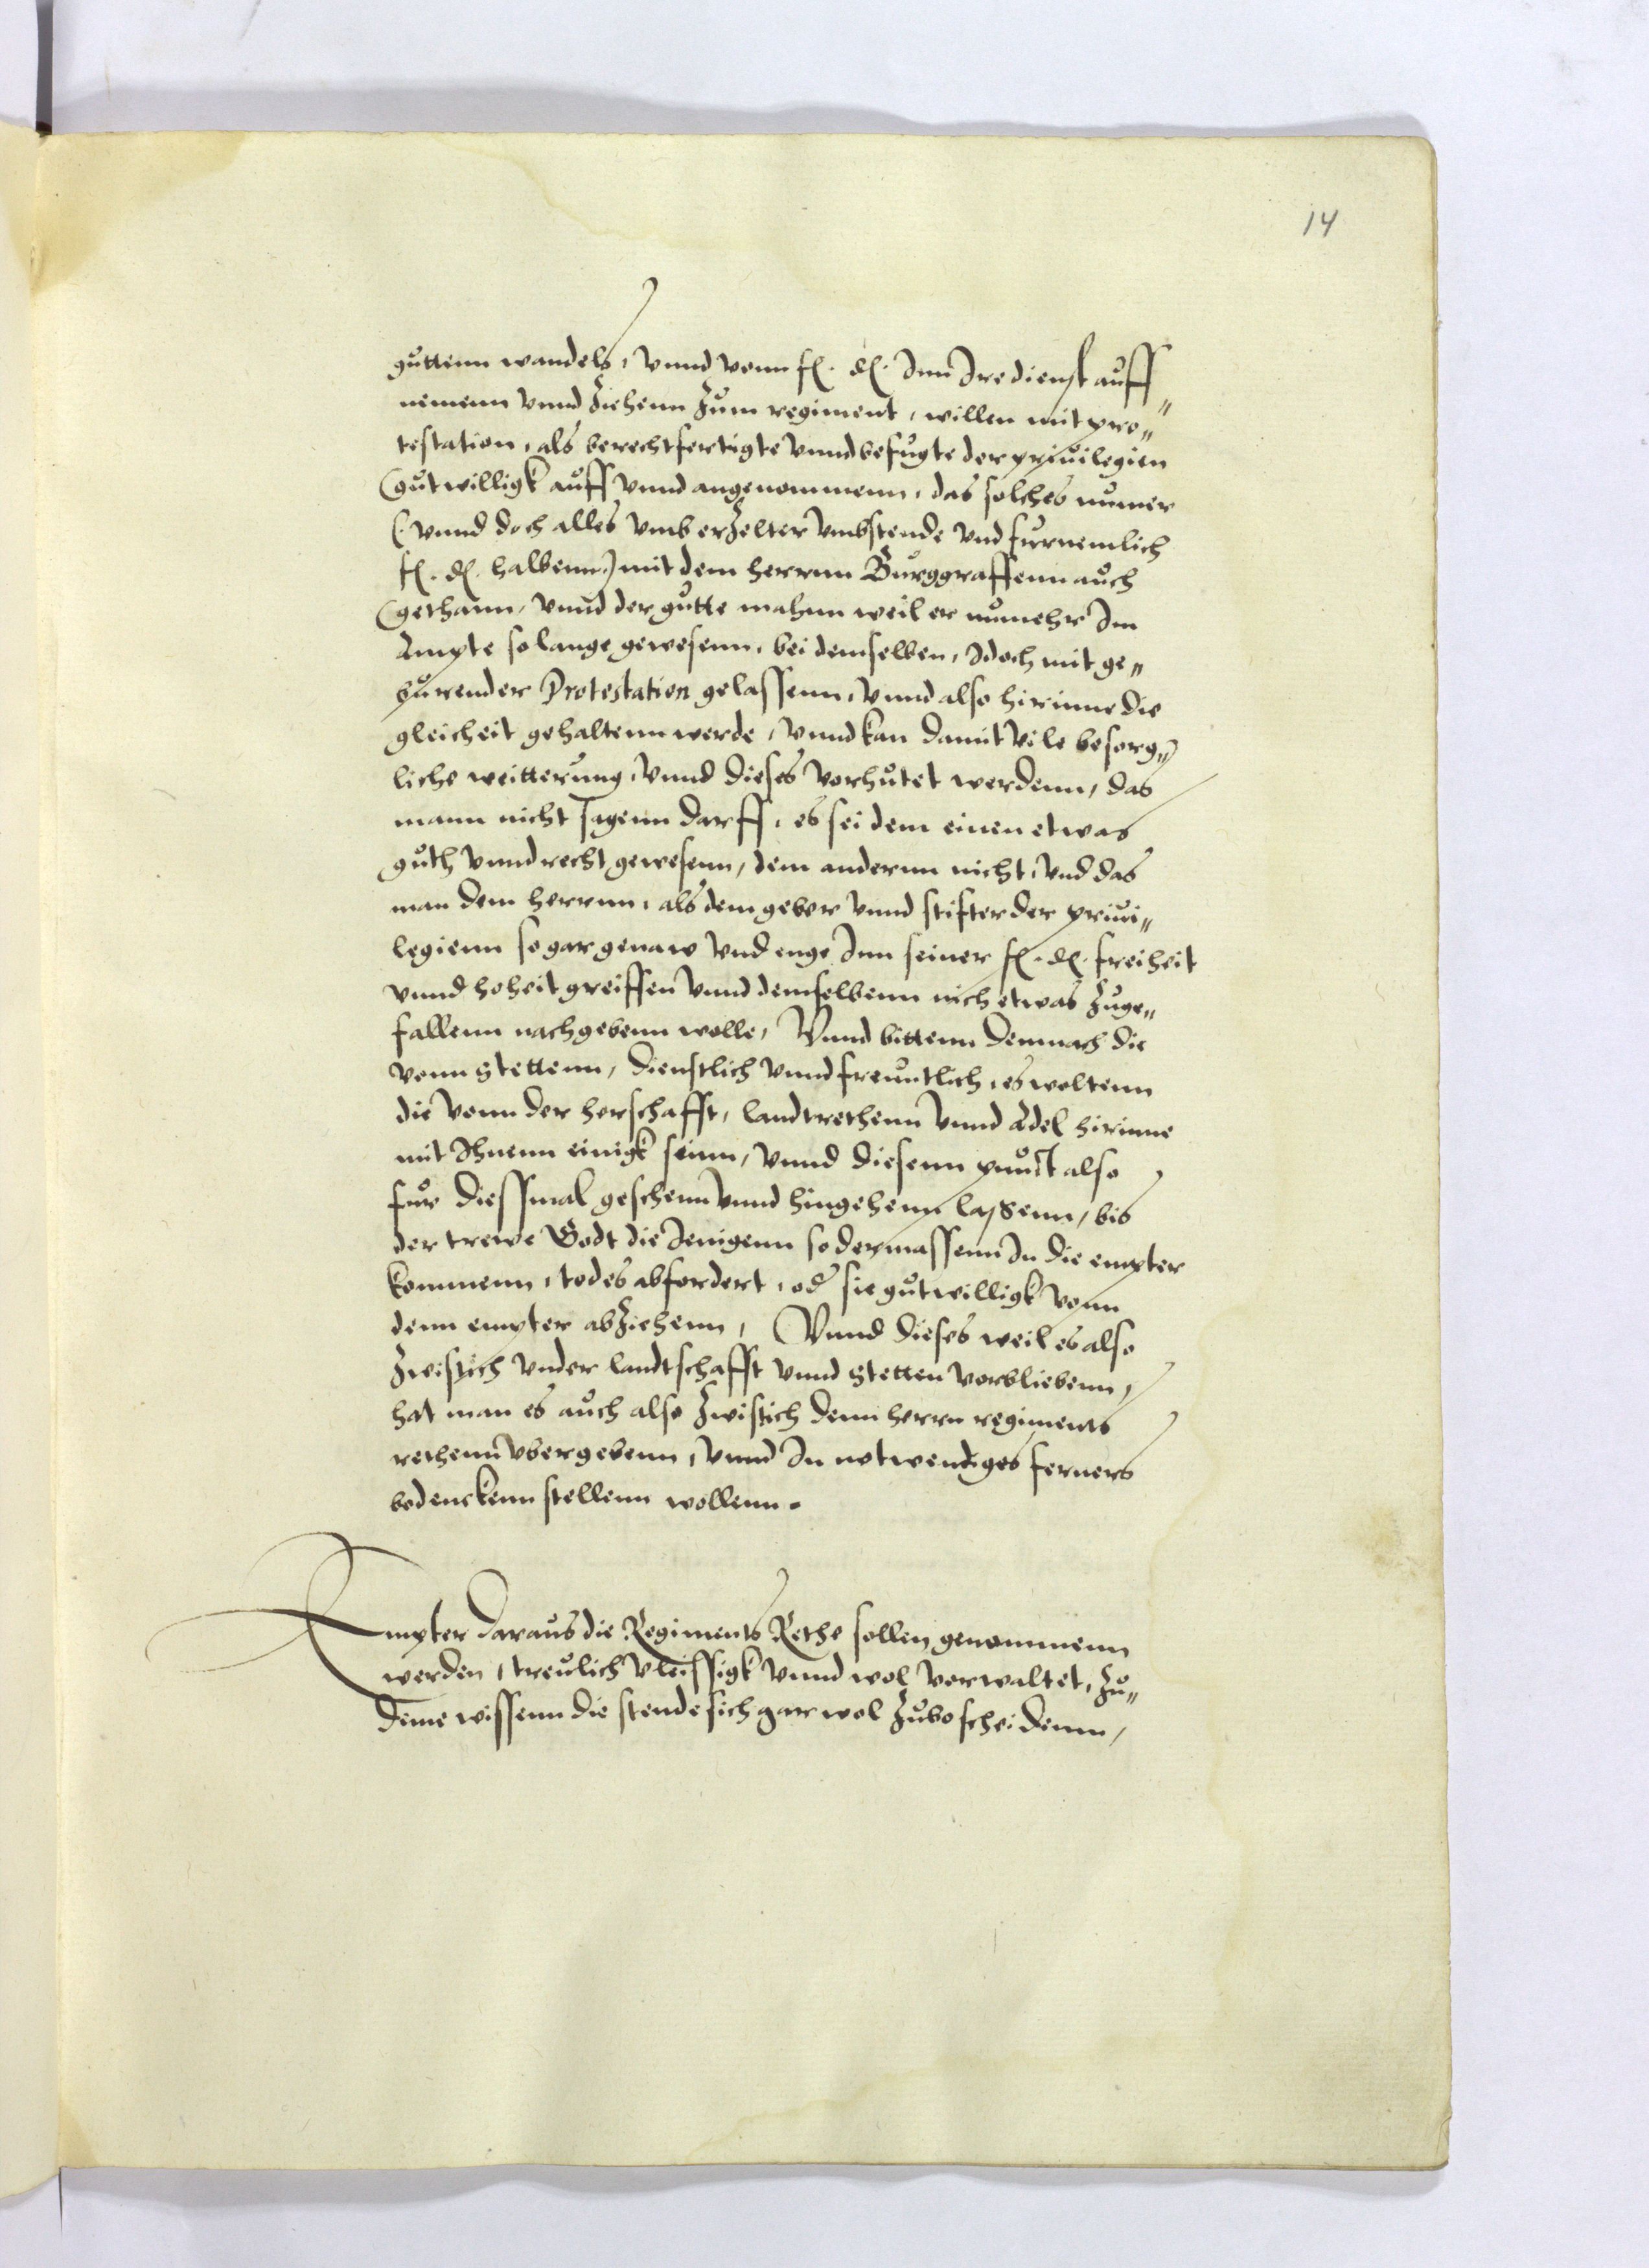 14
guttenn wandels, vnnd vonn f. d. Inn Ire dienst auff
nemenn vnnd ziehenn zum regiment, willen mit pro„
testation, als berechtfertigte vnnd befugte der priuilegien
gutwilligk auff vnnd angenommenn, das solches numer
(vnnd doch alles vmb erzelter vmbstende vnd furnemlich
f. d. halbenn) mit dem herrnn Burggraffenn auch
gethann, vnnd der gutte mahnn weil er numehr Im
Ampte so lange gewesenn, bei demselben, Idoch mit ge„
burender Protestation gelassenn, vnnd also hirinne die
gleicheit gehaltenn werde, vnnd kan damit vile besorg„
liche weitterung, vnnd dieses vorhutet werdenn, das
mann nicht sagenn darff, es sei dem einen etwas
guth vnnd recht gewesenn, dem andernn nicht, vnd das
man dem herrnn, als dem geber vnnd stifter der priui„
legienn so gar genaw vnd enge Inn seiner f. d. freiheit
vnnd hoheit greiffen vnnd demselbenn nich etwas zuge„
fallenn nachgebenn wolle, Vnnd bittenn demnach die
vonn Stettenn, dienstlich vnnd freuntlich, es woltenn
die vonn der herschafft, landtrethenn vnnd Adel hirinne
mit Ihnenn einigk seinn, vnnd diesenn punct also
fur diessmal geschenn vnnd hingehenn lassenn, bis
der trewe Godt die Ienigenn so dermassenn In die empter
kommenn, todes abfordert, od sie gutwilligk vonn
denn empter abziehenn, Vnnd dieses weil es also
zwistich vnder landtschafft vnnd Stetten vorbliebenn,
hat man es auch also zwistich denn herrn regiments
rethenn vbergebenn, vnnd In notwendiges ferners
bedenckenn stellenn wollenn.
Empter daraus die Regiments Rethe sollen genommenn
werden, treulich vleissigk vnnd wol vorwaltet, zu„
deme wissenn die stende sich gar wol zubescheidenn,